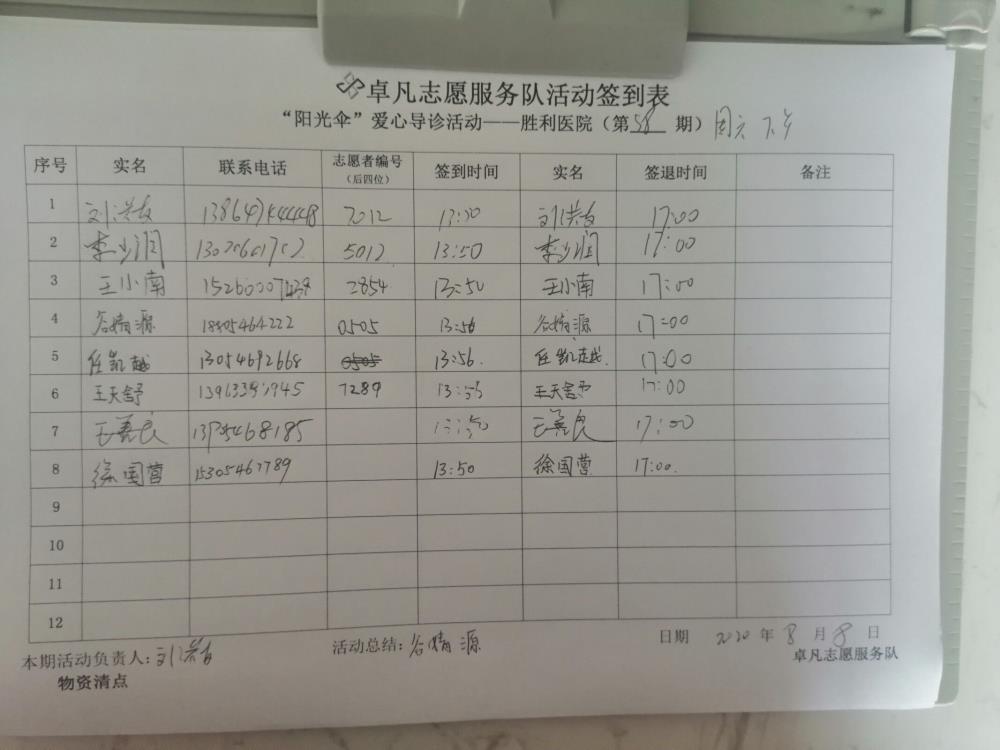 卓凡志愿服务队活动签到表
“阳光伞”爱心导诊活动——胜利医院（第58期）周六 下午
序号 实名 联系电话 志愿者编号（后四位） 签到时间 实名 签退时间 备注
1 7012 17:00
2 李少润 5012 13:50 李少润 17:00
3 王小南 2854 13:50 王小南 17:00
4 谷婧源 18805464222 0505 13:56 谷婧源 17:00
5 任凯越 13054692668 0505 13:56. 任凯越. 17:00
6 王天舒 7289 13:56 王天舒 17:00
7 王善良 王善良 17:00
8 徐国营 15305467789 13:50 徐国营 17:00.
9
10
11
12
本期活动负责人: 活动总结: 谷婧源 日期 2020 年 8 月 8 日
物资清点 卓凡志愿服务队